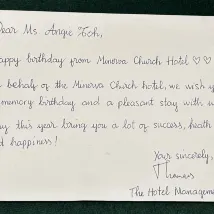 ear Ms. Angie Zoh,
appy birthday from Minerva Church Hotel ♡♡
behalf of the Minerva Church hotel, we wish y
memory birthday and a pleasant stay with u
y this year bring you a lot of success, heath
d happiness!
Your sincerely,
Thomas
The Hotel Manageme